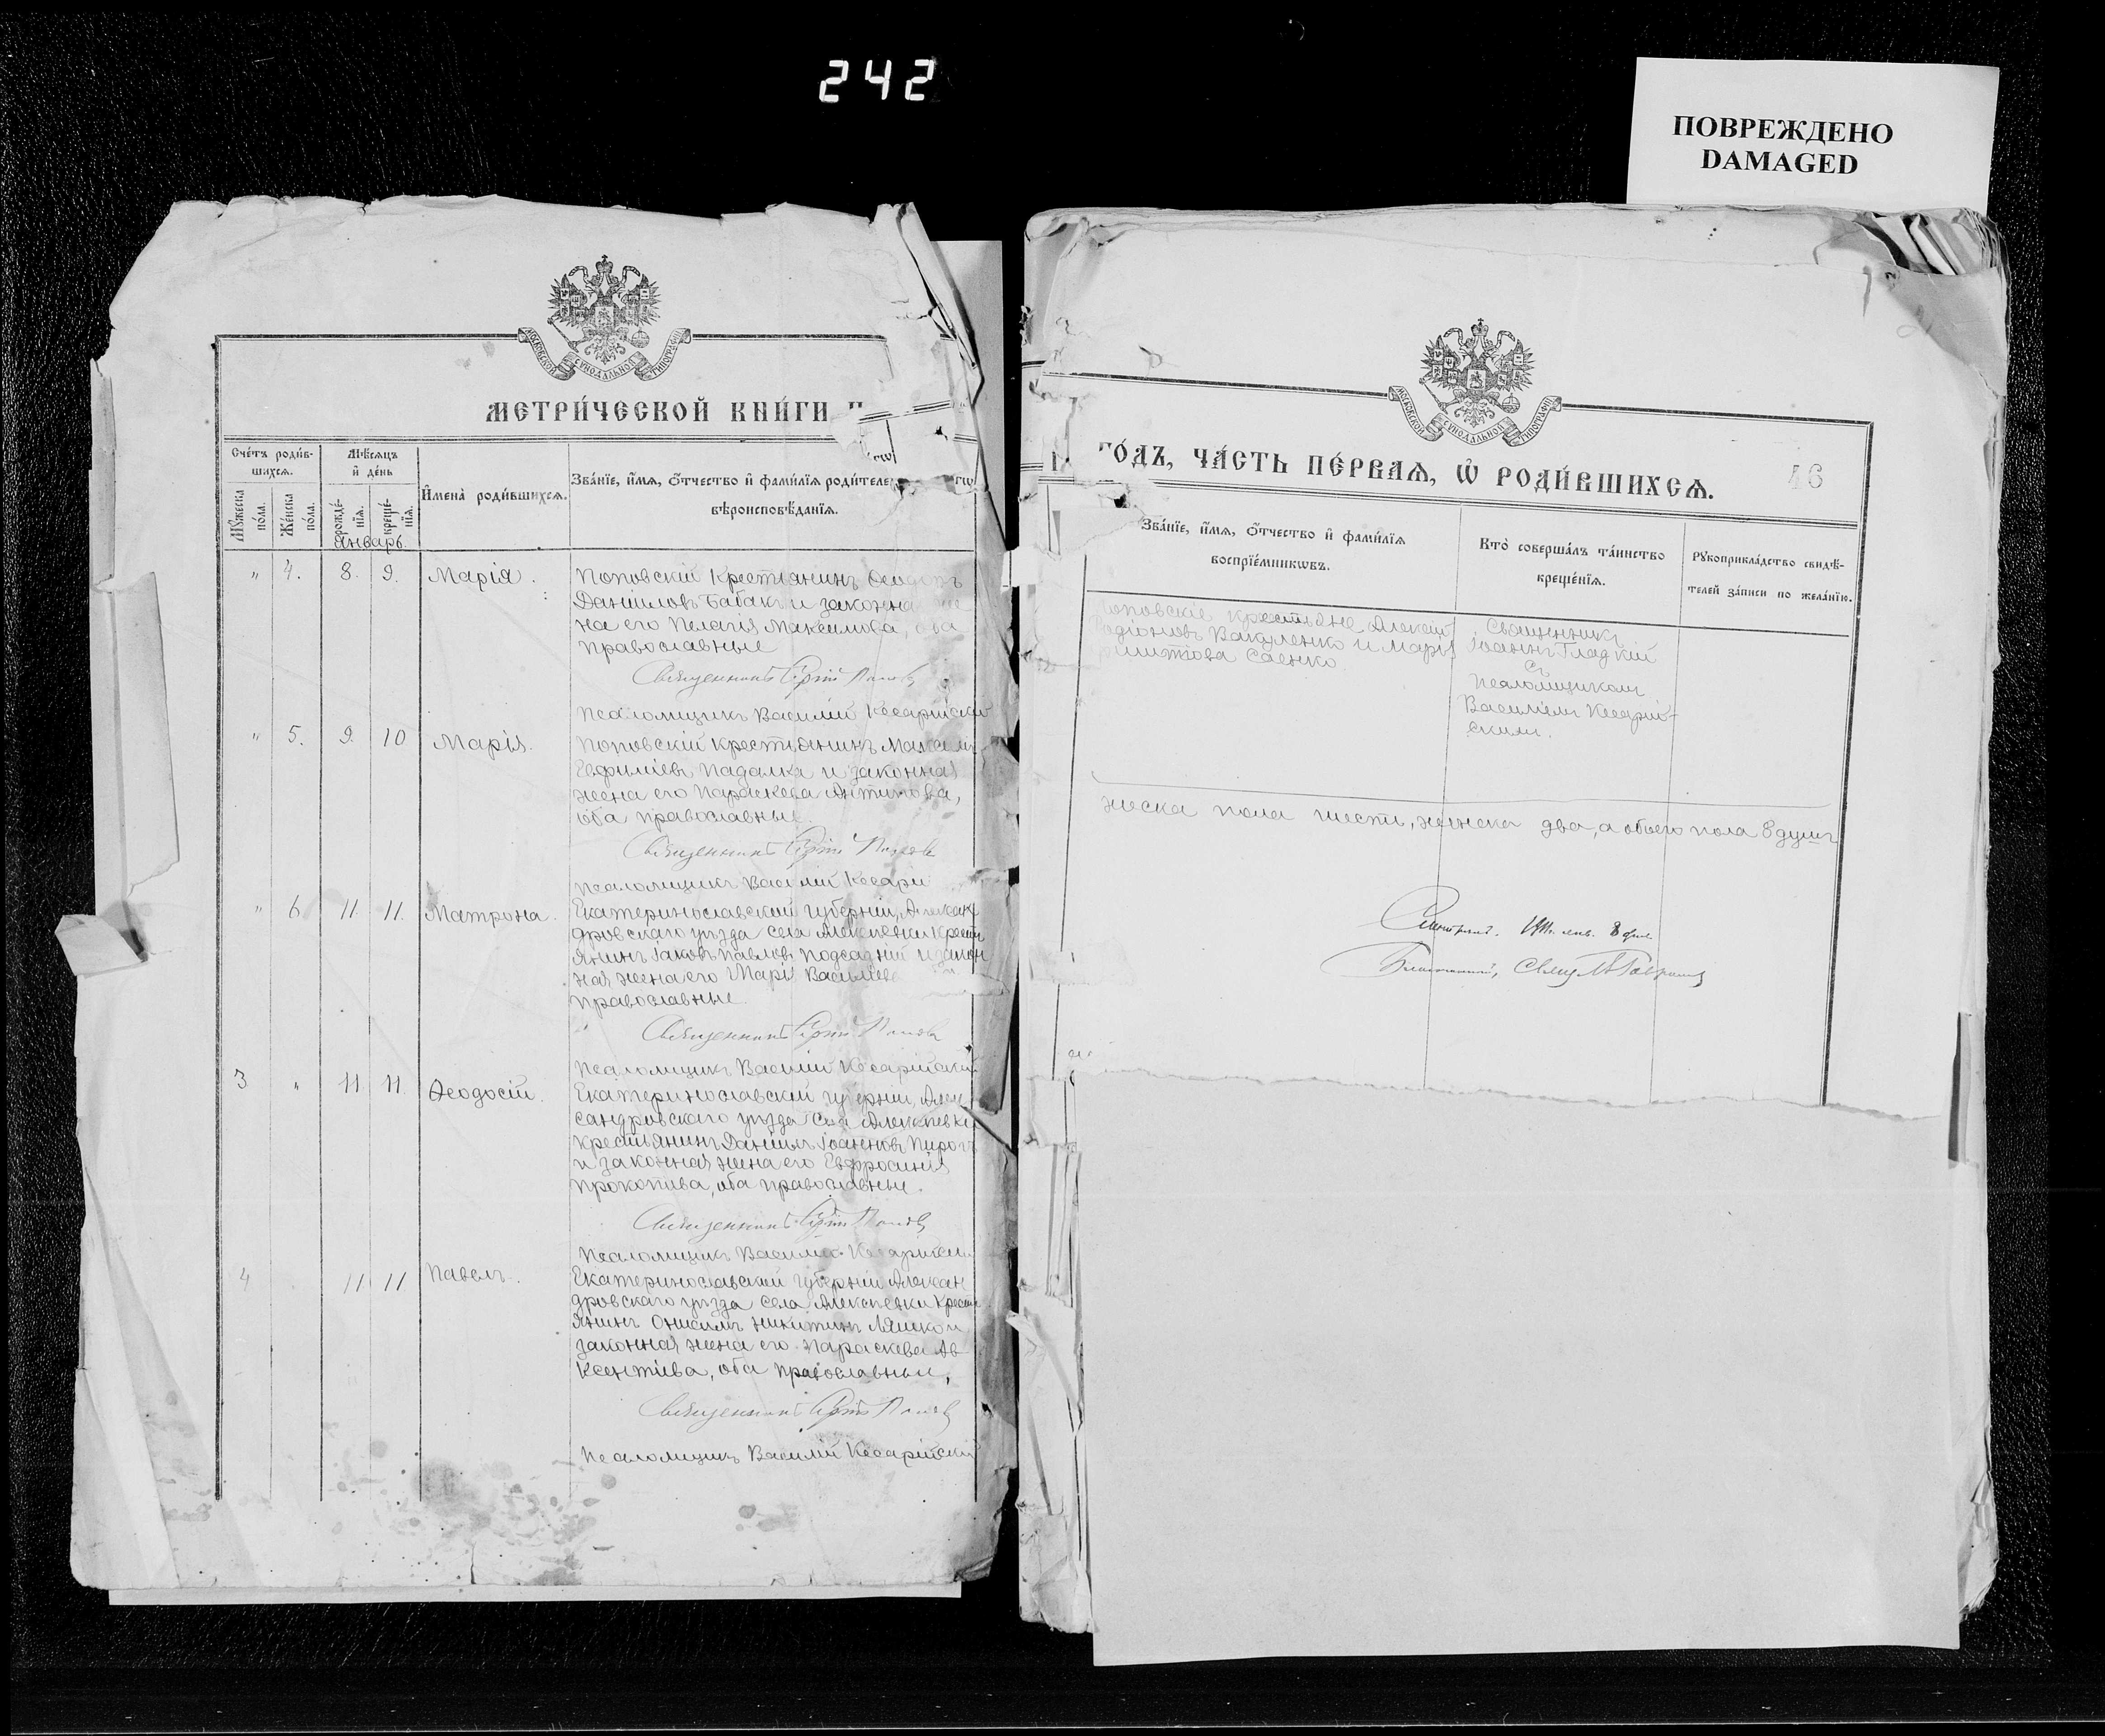 242
ПОВРЕЖДЕНО
DAMAGED
МОСКОВСКОЙ СѴНОДАЛЬНОЙ ТИПОГРАФІИ
МЕТРИ́ЧЕСКОЙ КНИ́ГИ
Сче́тъ роди́в-
шихсѧ.
Мꙋжеска
по́ла.
Же́нска
по́ла.
Мѣ́сѧцъ
и҆ де́нь
рожде́-
нїѧ.
креще́-
нїѧ.
Январь.
И҆мена̀ роди́вшихсѧ.
Зва́нїе, и҆́мѧ, ѻ҆́тчество и҆ фами́лїѧ роди́теле
вѣроисповѣ́данїѧ.
" 4. 8. 9. Марія.
Поповскій крестьянинъ
Даніиловъ Бабакъ и законна
на его Пелагія Максимова,
православные
Священникъ Попов
Псаломщикъ Василій Кесарійскій
" 5. 9. 10 Марія.
Поповскій крестьянинъ Максимъ
Евфиміевъ Падалка и законная
жена его Параскева Антипова,
оба православные.
Священникъ Попов
Псаломщикъ Василій Кесари
" 6 11. 11. Матрона.
Екатеринославской губерніи, Алексан
дровскаго уѣзда села Алексѣевки крест
янинъ Іаковъ Павловъ Подсадній и закон
ная жена его Марі Василіев
православные.
Священникъ Попов
Псаломщикъ Василій Кесарійскій
3 " 11 11. Ѳеодосій.
Екатеринославской губерніи, Алек
сандровскаго уѣзда села Алексѣевки
крестьянинъ Даніилъ Іоанновъ Пирогъ
и законная жена его Евфросинія
Прокопіева, оба православные.
Священникъ Попов
Псаломщикъ Василій Кесарійскій
4 11 11 Павелъ.
Екатеринославской губерніи Алексан
дровскаго уѣзда села Алексѣевки крест
янинъ Онисимъ Никитинъ Ляшко и
законная жена его Параскева Ав
ксентіева, оба православные,
Священникъ Попов
Псаломщикъ Василій Кесарійскій
МОСКОВСКОЙ СѴНОДАЛЬНОЙ ТИПОГРАФІИ
ГО́ДЪ, ЧА́СТЬ ПЕ́РВАѦ, Ѡ҆ РОДИ́ВШИХСѦ.
46
Зва́нїе, и҆́мѧ, ѻ҆́тчество и҆ фами́лїѧ
воспрїе́мникѡвъ.
Кто̀ соверша́лъ та́инство
креще́нїѧ.
Рꙋкоприкла́дство свидѣ́-
телей за́писи по жела́нїю.
Поповскіе крестьяне Алексій
Родіоновъ Вакуленко и Марія
Саенко.
Священникъ
Іоаннъ Гладкій
съ
псаломщикомъ
Василіемъ Кесарій-
скимъ.
жеска пола шесть, женска два, а обоего пола 8 душъ